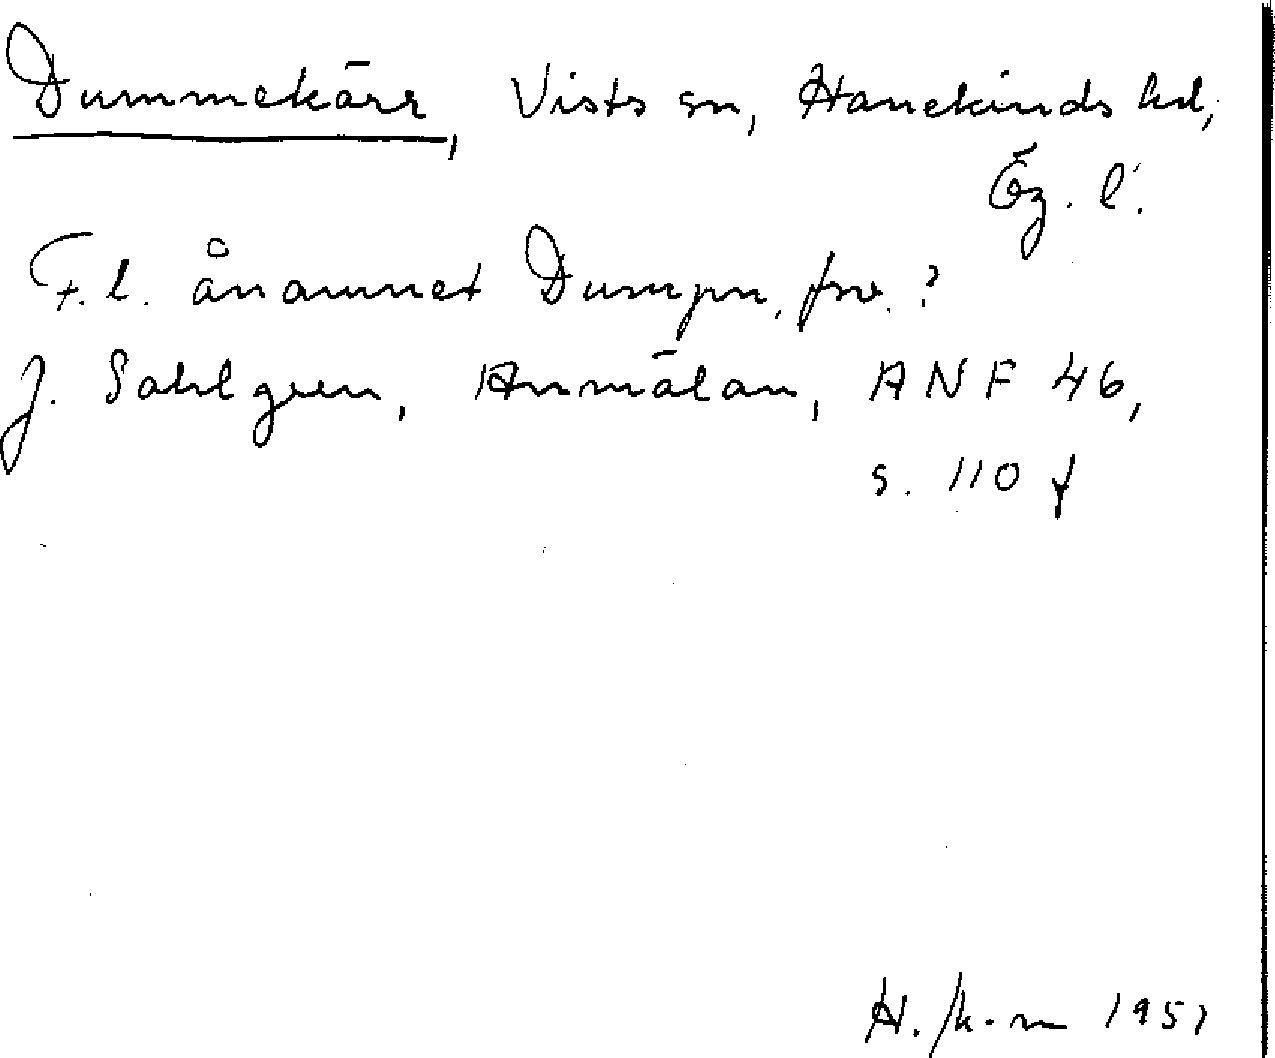 Dummekärr, Vists sn, Hanekinds hd,
Ög. l.
F.l. ånamnet Dumpn, fsv. ?
J. Sahlgren, Anmälan, ANF 46,
s. 110 f
H. 1951